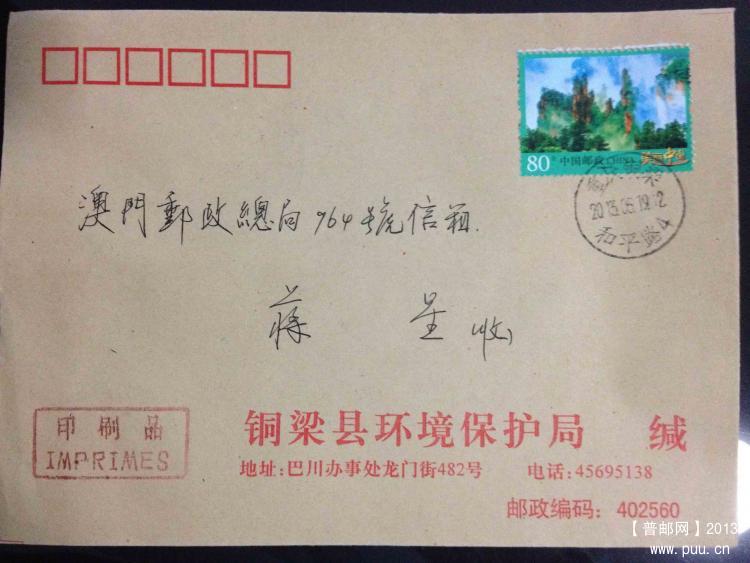 80分 中国邮政 CHINA
2013.05.19.12
和平路4
澳門郵政總局964號信箱.
蔣 星 收
印刷品
IMPRIMES
铜梁县环境保护局 缄
地址:巴川办事处龙门街482号 电话:45695138
邮政编码: 402560
【普邮网】2013
www.puu.cn